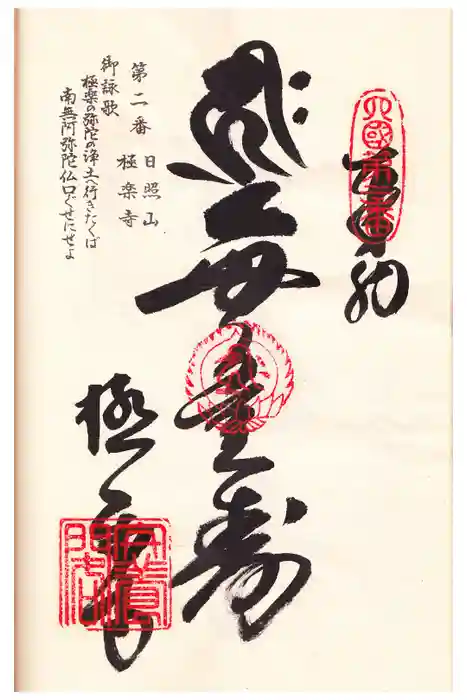 四國第二番
奉納
無量寿
極楽寺
第二番 日照山
極楽寺
御詠歌
極楽の弥陀の浄土へ行きたくば
南無阿弥陀仏口ぐせにせよ